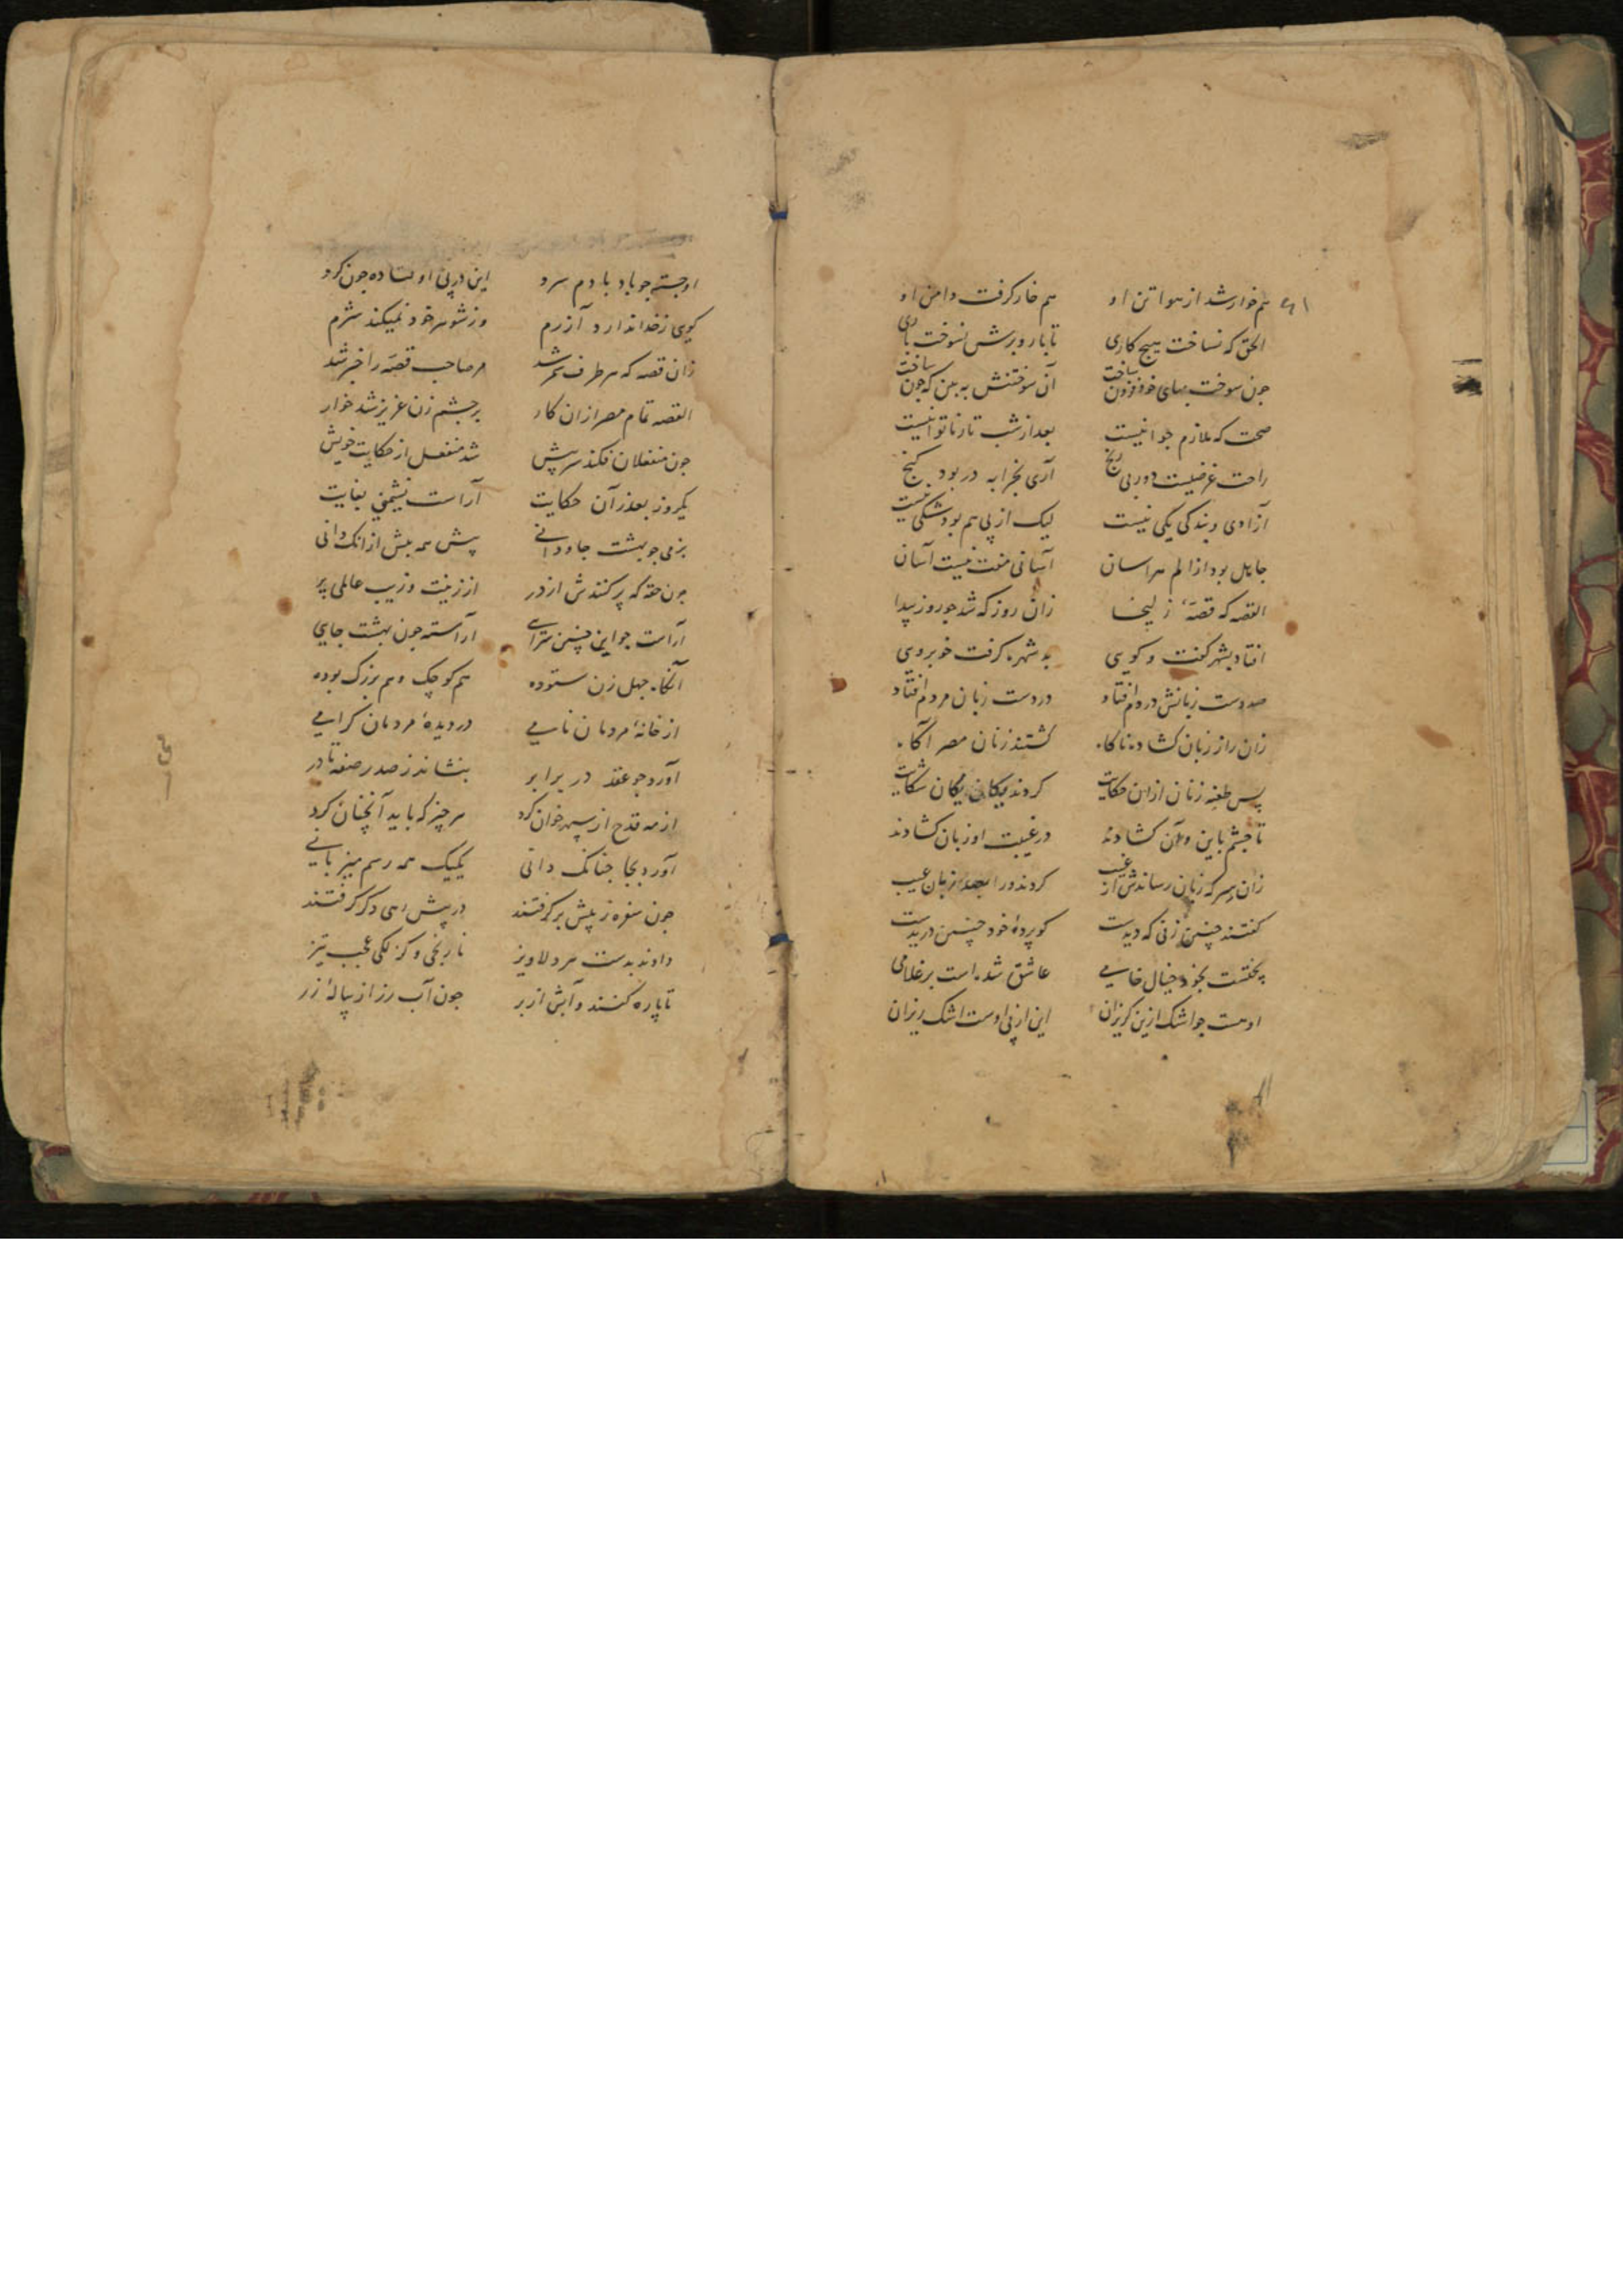 هم خوار شد از هوا تن او هم خار گرفت دامن او
الحق که نساخت هیچ کاری تا بار و برش نسوخت باری
جون سوخت بهای خود فزون ساخت آن سوختنش به بین که جون ساخت
صحت که ملازم جوانیست بعد از شب تار ناتوانیست
راحت غرضیست دور بی رنج آری بخرابه در بود گنج
آزادی و بندگی یکی نیست لیک از پی هم بود شکی نیست
جاهل بود از الم هراسان آسانی مفت نیست آسان
القصه که قصهٔ زلیخا زان روز که شد جو روز پیدا
افتاد بشهر گفت و کوی به شهره گرفت خوبروی
صد دست زبانش در دم افتاد در دست زبان مردم افتاد
زان راز زبان کشاده ناگاه گشتند زنان مصر آگاه
پس طعنه زنان ازان حکایت کردند یکان یکان شکایت
تا جشم باین و آن کشادند در غیبت او زبان کشادند
زان سر که زبان رساندش از غیب کردند ورا بصد زبان عیب
گفتند چنین زنی که دیدست کو پردهٔ خود چنین دریدست
پختست بخود خیال خامی عاشق شده است بر غلامی
اوست جو اشک ازین گریزان این از پی اوست اشک ریزان
او جسته جو باد با دم سرد این در پی او فتاده جون گرد
گوی ز خدا ندارد آزرم وز شوهر خود نمیکند شرم
زان قصه که هر طرف سمر شد مر صاحب قصه را خبر شد
القصه تمام مصر ازان کار بر جشم زن عزیز شد خوار
جون منفعلان فکند سر پیش شد منفعل از حکایت خویش
یکروز بعذر آن حکایت آراست نشیمنی بغایت
بزمی جو بهشت جاودانی پیش همه بیش از انک دانی
جون حقه که پر کنندش از در از زینت و زیب عالمی پر
آراست جو این چنین سرای آراسته جون بهشت جایی
آنگاه جهل زن ستوده هم کوچک و هم بزرگ بوده
از خانهٔ مردمان نامی در دیدهٔ مردمان گرامی
آورد جو عقد در برابر بنشاند ز صدر صفه تا در
از مه قدح از سپهر خوان کرد هر چیز که باید آنچنان کرد
آورد بجا جنانک دانی یکیک همه رسم میزبانی
جون سفره ز پیش برگرفتند در پیش رهی دگر گرفتند
دادند بدست هر دلاویز نارنجی و گزلکی عجب تیز
تا پاره کنند و آبش از بر جون آب رز از پیالهٔ زر